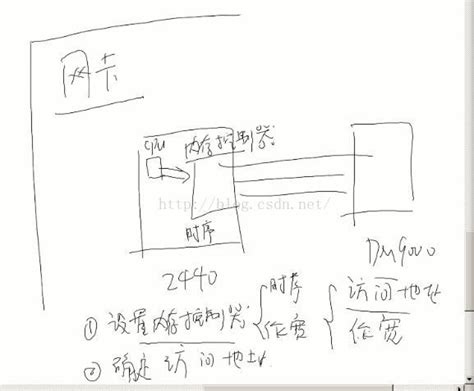 网卡
CPU 内存控制器
http://blog.csdn.net/
时序
2440
DM9000
① 设置内存控制器 { 时序 { 访问地址
位宽 位宽
② 确定访问地址